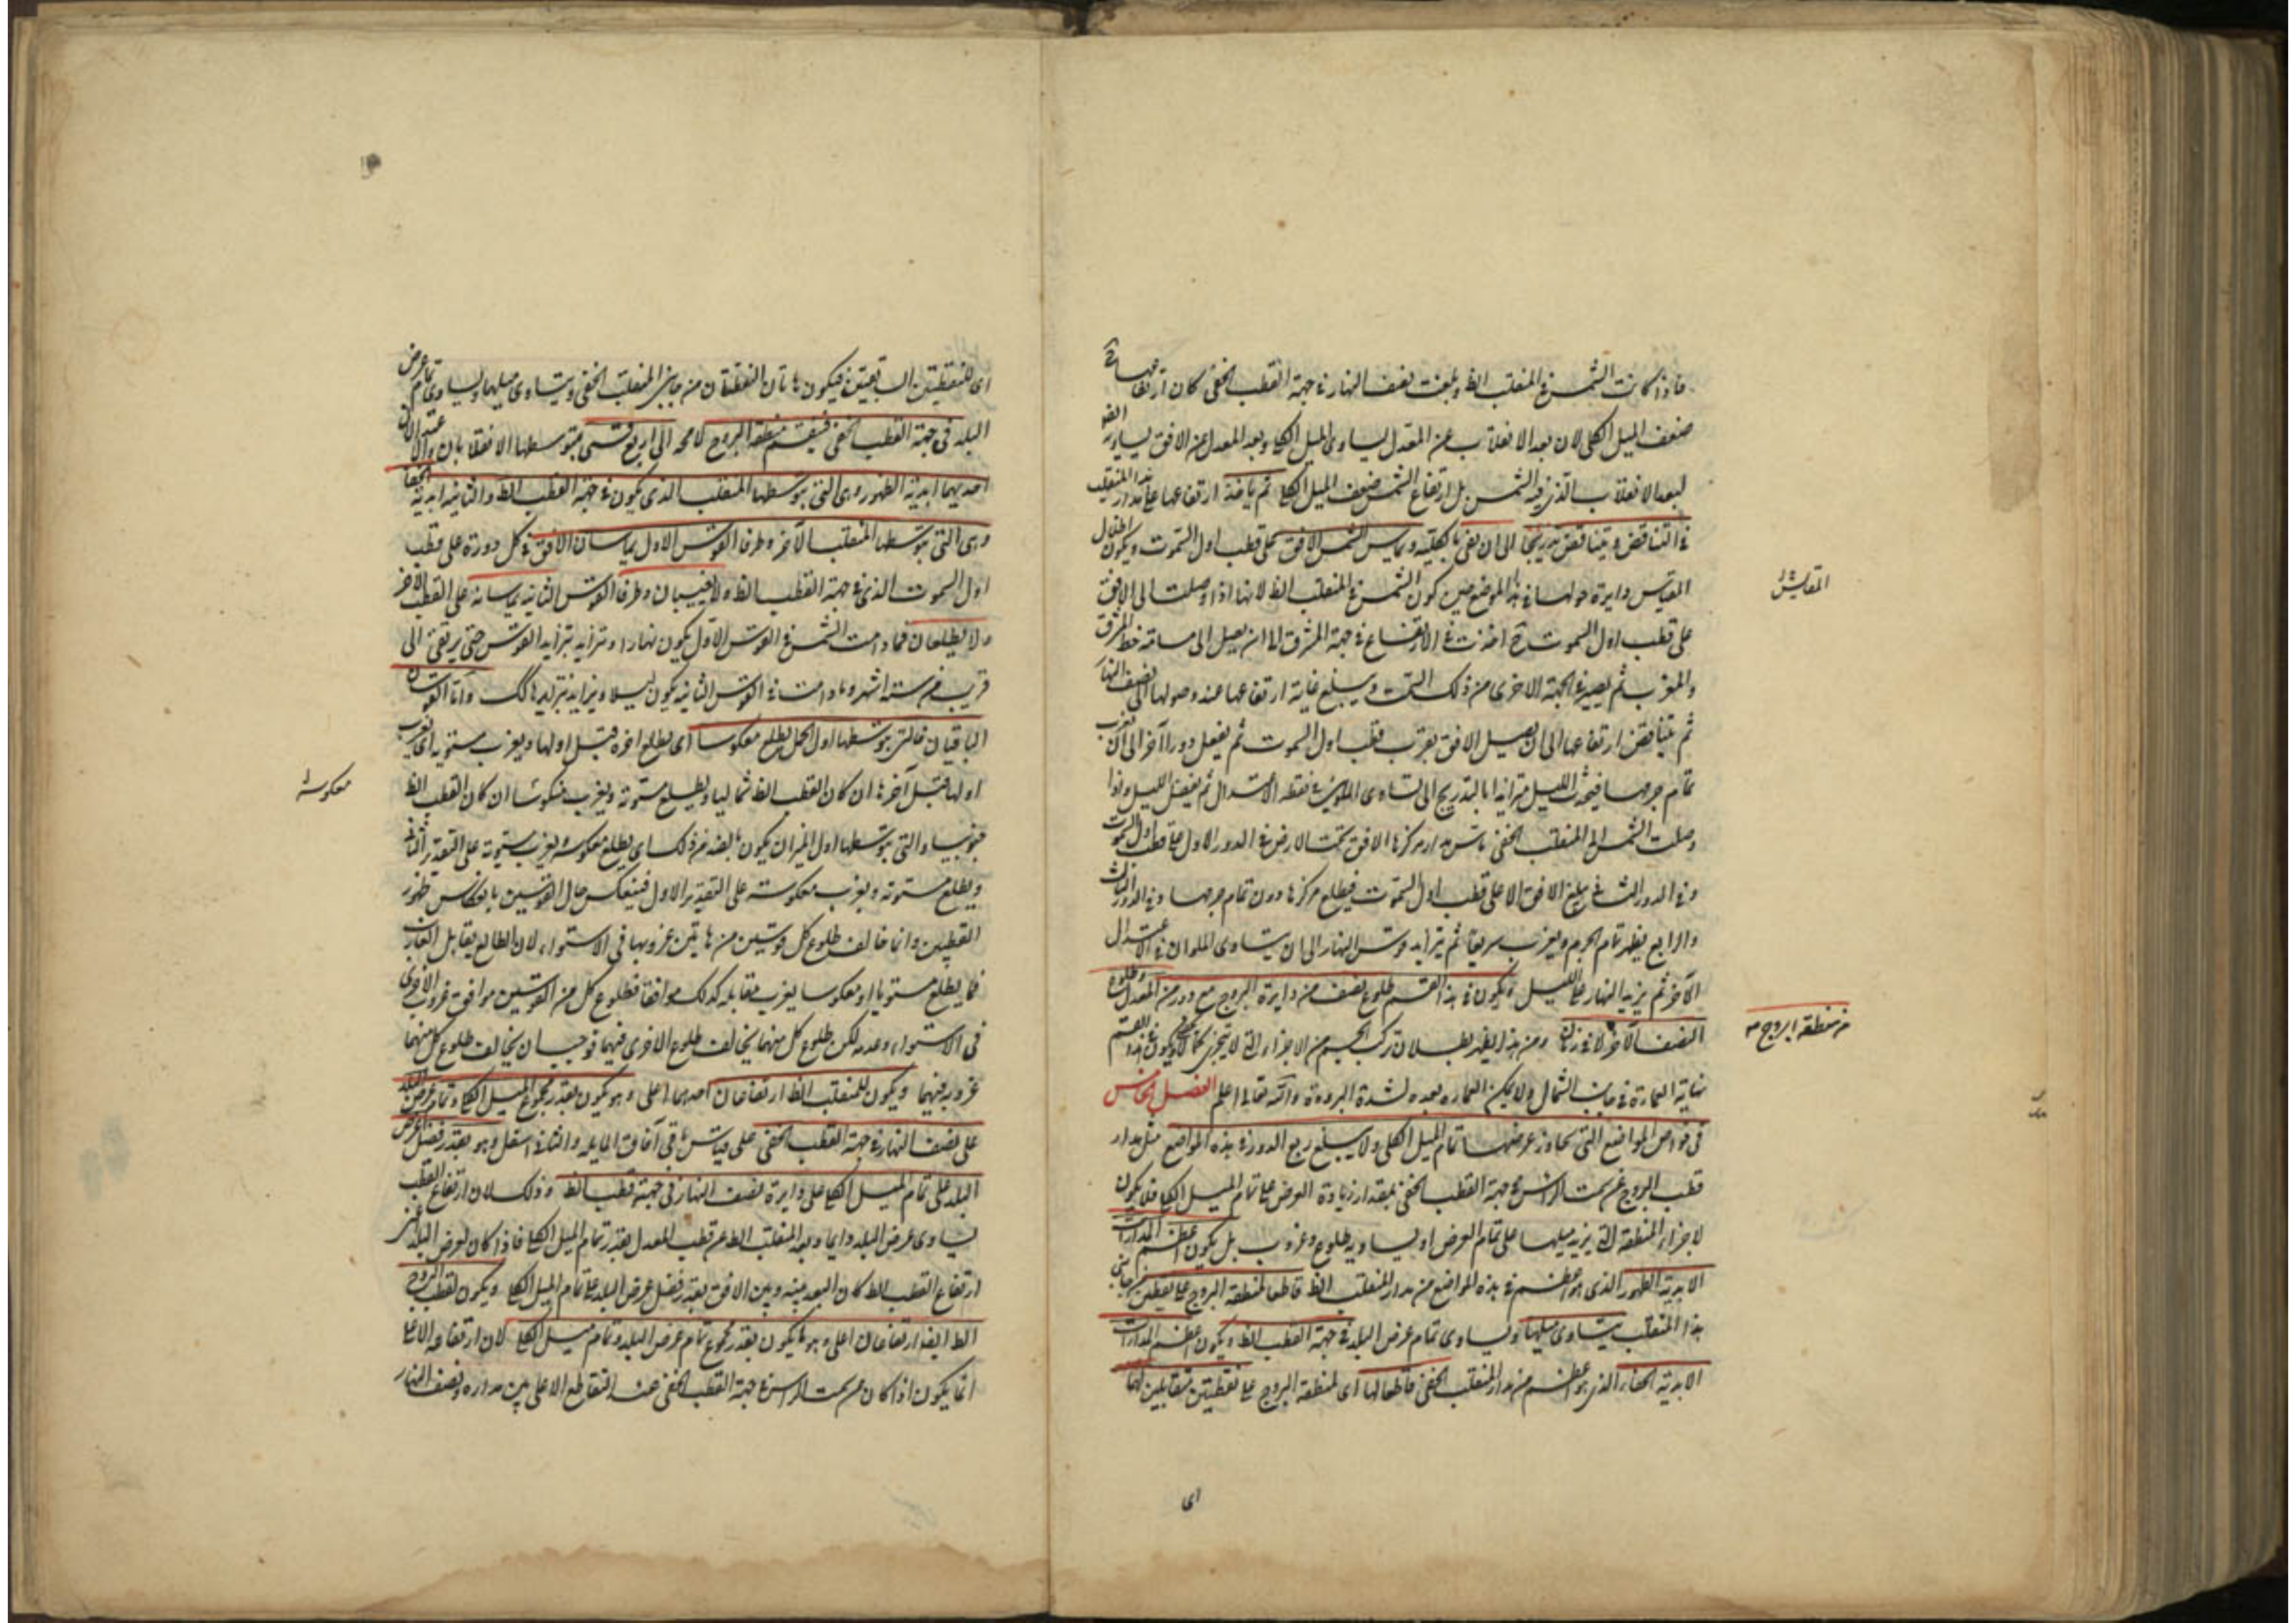 فاذا كانت الشمس فى المنقلب الظ وبلغت نصف النهار فى جهة القطب الخفى كان ارتفاعها ح
ضعف الميل الكلى لان بعد الانقلاب عن المعدل يساوى الميل الكلى وبعد المعدل عن الافق يساوى ايضا
لبعد الانقلاب الذى فيه الشمس بل ارتفاع الشمس ضعف الميل الكلى ثم ياخذ ارتفاعها على مدار المنقلب
فى التناقص ويتناقص تدريجا الى ان يفنى بالكلية ويماس الشمس الافق على قطب اول السموت ويكون اظلال
المقياس دايرة حولها فى هذا الموضع حين كون الشمس فى المنقلب الظ لانها اذا وصلت الى الافق
على قطب اول السموت ح اخذت فى الارتفاع فى جهة المشرق الى ان يصل الى مسامتة خط المشرق
والمغرب ثم يصير فى الجهة الاخرى من ذلك السمت ويبلغ غاية ارتفاعها عند وصولها الى نصف النهار
ثم يتناقص ارتفاعها الى ان يصل الافق بقرب قطب اول السموت ثم يفعل دورا آخر الى ان يغرب
تمام جرمها فيحدث الليل متزايدا بالتدريج الى تساوى الملوين فى نقطة الاعتدال ثم يفضل الليل واذا
وصلت الشمس الى المنقلب الخفى ماس مدار مركزها الافق تحت الارض فى الدور الاول على قطب اول السموت
وفى الدور الثانى يبلغ الافق الا على قطب اول السموت فيطلع مركزها دون تمام جرمها وفى الدور الثالث
والرابع يظهر تمام الجرم ويغرب سريعا ثم يتزايد قوس النهار الى ان يتساوى الملوان فى الاعتدال
الآخر ثم يزيد النهار على الليل ويكون فى هذا القسم طلوع نصف من دايرة البروج مع دور من المعدل وطلوع
النصف الآخر لا فى زمان ومن هذا يظهر بطلان تركب الجسم من الاجزاء التى لا يتجزى ويكون فى هذا القسم
نهاية العمارة فى جانب الشمال ولا يمكن العمارة بعده لشدة البرودة والله تعالى اعلم الفصل الخامس
فى خواص المواضع التى جاوز عرضها تمام الميل الكلى ولا يبلغ ربع الدور فى هذه المواضع مثل مدار
قطب البروج عن سمت الراس فى جهة القطب الخفى بمقدار زيادة العرض على تمام الميل الكلى فلا يكون
لاجزاء المنطقة التى يزيد ميلها على تمام العرض او يساويه طلوع وغروب بل يكون اعظم المدارات
الابدية الظهور الذى هو اعظم فى هذه المواضع من مدار المنقلب الظ قاطعا لمنطقة البروج على نقطتين من جانبى
هذا المنقلب يتساوى ميلهما ويساوى تمام عرض البلد فى جهة القطب الظ ويكون اعظم المدارات
الابدية الخفاء الذى هو اعظم من مدار المنقلب الخفى قاطعا لها اى لمنطقة البروج على نقطتين متقابلتين لهما
اى
المقاييس
من منطقة البروج
اى للنقطتين السابقتين فيكون هاتان النقطتان من جانبى المنقلب الخفى ويتساوى ميلهما ويساوى تمام عرض
البلد فى جهة القطب الخفى فينقسم منطقة البروج لا محه الى اربع قسى يتوسطها الانقلابان والاعتدالان
احديهما ابدية الظهور وهى التى يتوسطها المنقلب الذى يكون فى جهة القطب الظ والثانية ابدية الخفا
وهى التى يتوسطها المنقلب الآخر وطرفا القوس الاول يماسان الافق فى كل دورة على قطب
اول السموت الذى فى جهة القطب الظ ولا يغيبان وطرفا القوس الثانية يماسانه على القطب الآخر
ولا يطلعان فما دامت الشمس فى القوس الاول يكون نهارا ويتزايد بتزايد القوس حتى يرتقى الى
قريب من ستة اشهر وما دامت فى القوس الثانية يكون ليلا ويتزايد بتزايدها كك واما القوسان
الباقيان فالتى يتوسطها اول الحمل يطلع معكوسا اى يطلع آخره قبل اولها ويغرب مستوية اى يغرب
اولها قبل آخرها ان كان القطب الظ شماليا ويطلع مستوية ويغرب منكوسا ان كان القطب الظ
جنوبيا والتى يتوسطها اول الميزان يكون بالضد من ذلك اى يطلع معكوسة ويغرب مستوية على التقدير الثانى
ويطلع مستوية ويغرب معكوسة على التقدير الاول فينعكس حال القوسين بانعكاس ظهور
القطبين وانما خالف طلوع كل قوسين من هاتين غروبها فى الاستواء لان الطالع يقابل الغارب
فما يطلع مستويا او معكوسا يغرب مقابله كذلك موافقا فطلوع كل من القوسين موافق غروب الاخرى
فى الاستواء وعدمه لكن طلوع كل منهما يخالف طلوع الاخرى فيهما فوجب ان يخالف طلوع كل منهما
غروبه فيهما ويكون للمنقلب الظ ارتفاعان احدهما اعلى وهو يكون بقدر مجموع الميل الكلى وتمام عرض البلد
على نصف النهار فى جهة القطب الخفى على قياس باقى آفاق المايلة والثانى اسفل وهو بقدر فضل عرض
البلد على تمام الميل الكلى على دايرة نصف النهار فى جهة قطب الظ وذلك لان ارتفاع القطب
يساوى عرض البلد دايما وبعد المنقلب الظ عن قطب المعدل بقدر تمام الميل الكلى فاذا كان لعرض البلد
ارتفاع القطب الظ كان البعد بينه وبين الافق بقدر فضل عرض البلد على تمام الميل الكلى ويكون لقطب البروج
الظ ايضا ارتفاعان اعلى وهو ما يكون بقدر مجموع تمام عرض البلد وتمام ميل الكلى لان ارتفاعه الاعلى
انما يكون اذا كان عن سمت الراس فى جهة القطب الخفى عند التقاطع الاعلى بين مداره ونصف النهار
معكوسة